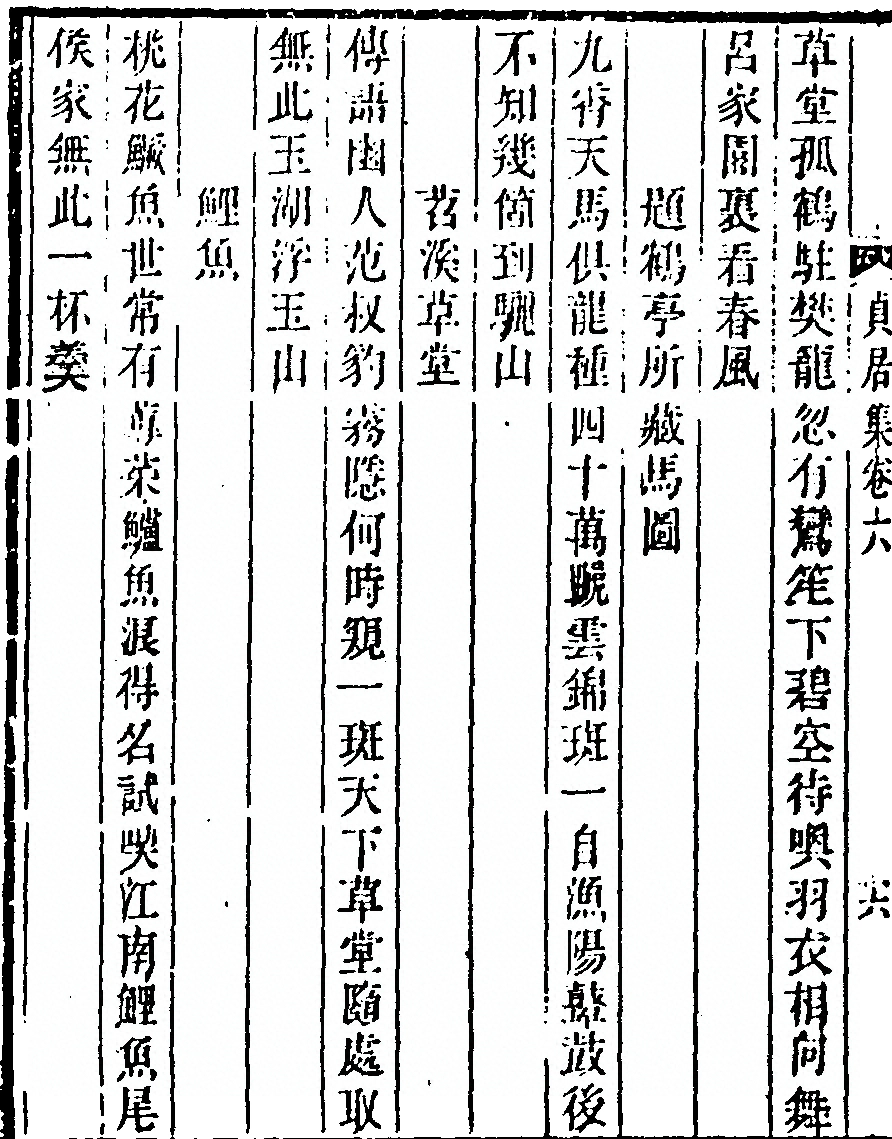 貞居集卷六
六
草堂孤鶴駐樊籠忽有鸞笙下碧空待喚羽衣相向舞
呂家園裏看春風
題鶴亭所藏馬圖
九番天馬俱龍種四十萬騘雲錦斑一自漁陽鼙鼓後
不知幾箇到驪山
苕溪草堂
傳語幽人范叔豹霧隱何時窺一斑天下草堂隨處取
無此玉湖浮玉山
鯉魚
桃花鱖魚世常有蓴菜鱸魚浪得名試喫江南鯉魚尾
侯家無此一杯羹